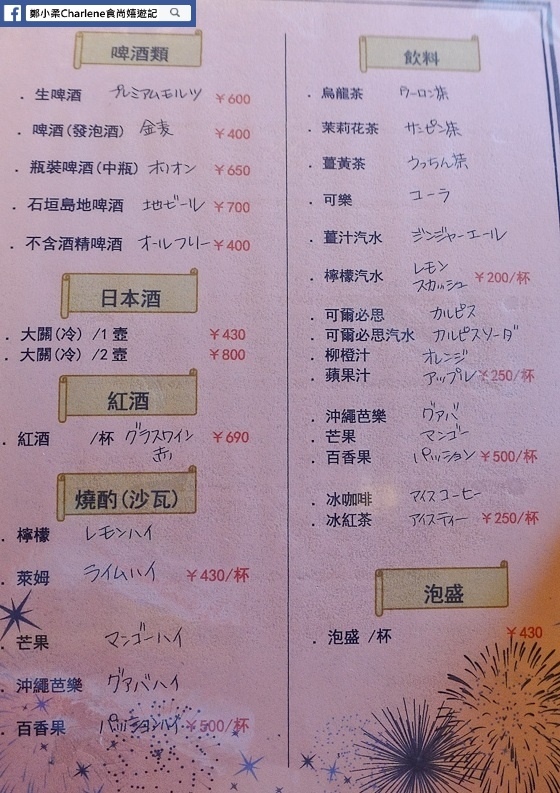 鄭小柔Charlene食尚嬉遊記
啤酒類
．生啤酒 プレミアムモルツ ￥600
．啤酒(發泡酒) 金麦 ￥400
．瓶裝啤酒(中瓶) オリオン ￥650
．石垣島地啤酒 地ビール ￥700
．不含酒精啤酒 オールフリー ￥400
日本酒
．大關(冷) /1 壺 ￥430
．大關(冷) /2 壺 ￥800
紅酒
．紅酒 /杯 グラスワイン ￥690
赤
燒酌(沙瓦)
．檸檬 レモンハイ
．萊姆 ライムハイ ￥430/杯
．芒果 マンゴーハイ
．沖繩芭樂 グァバハイ
．百香果 パッションハイ ￥500/杯
飲料
．烏龍茶 ウーロン茶
．茉莉花茶 サンピン茶
．薑黃茶 うっちん茶
．可樂 コーラ
．薑汁汽水 ジンジャーエール
．檸檬汽水 レモン
スカッシュ ￥200/杯
．可爾必思 カルピス
．可爾必思汽水 カルピスソーダ
．柳橙汁 オレンジ
．蘋果汁 アップル ￥250/杯
．沖繩芭樂 グァバ
．芒果 マンゴー
．百香果 パッション ￥500/杯
．冰咖啡 アイスコーヒー
．冰紅茶 アイスティー ￥250/杯
泡盛
．泡盛 /杯 ￥430